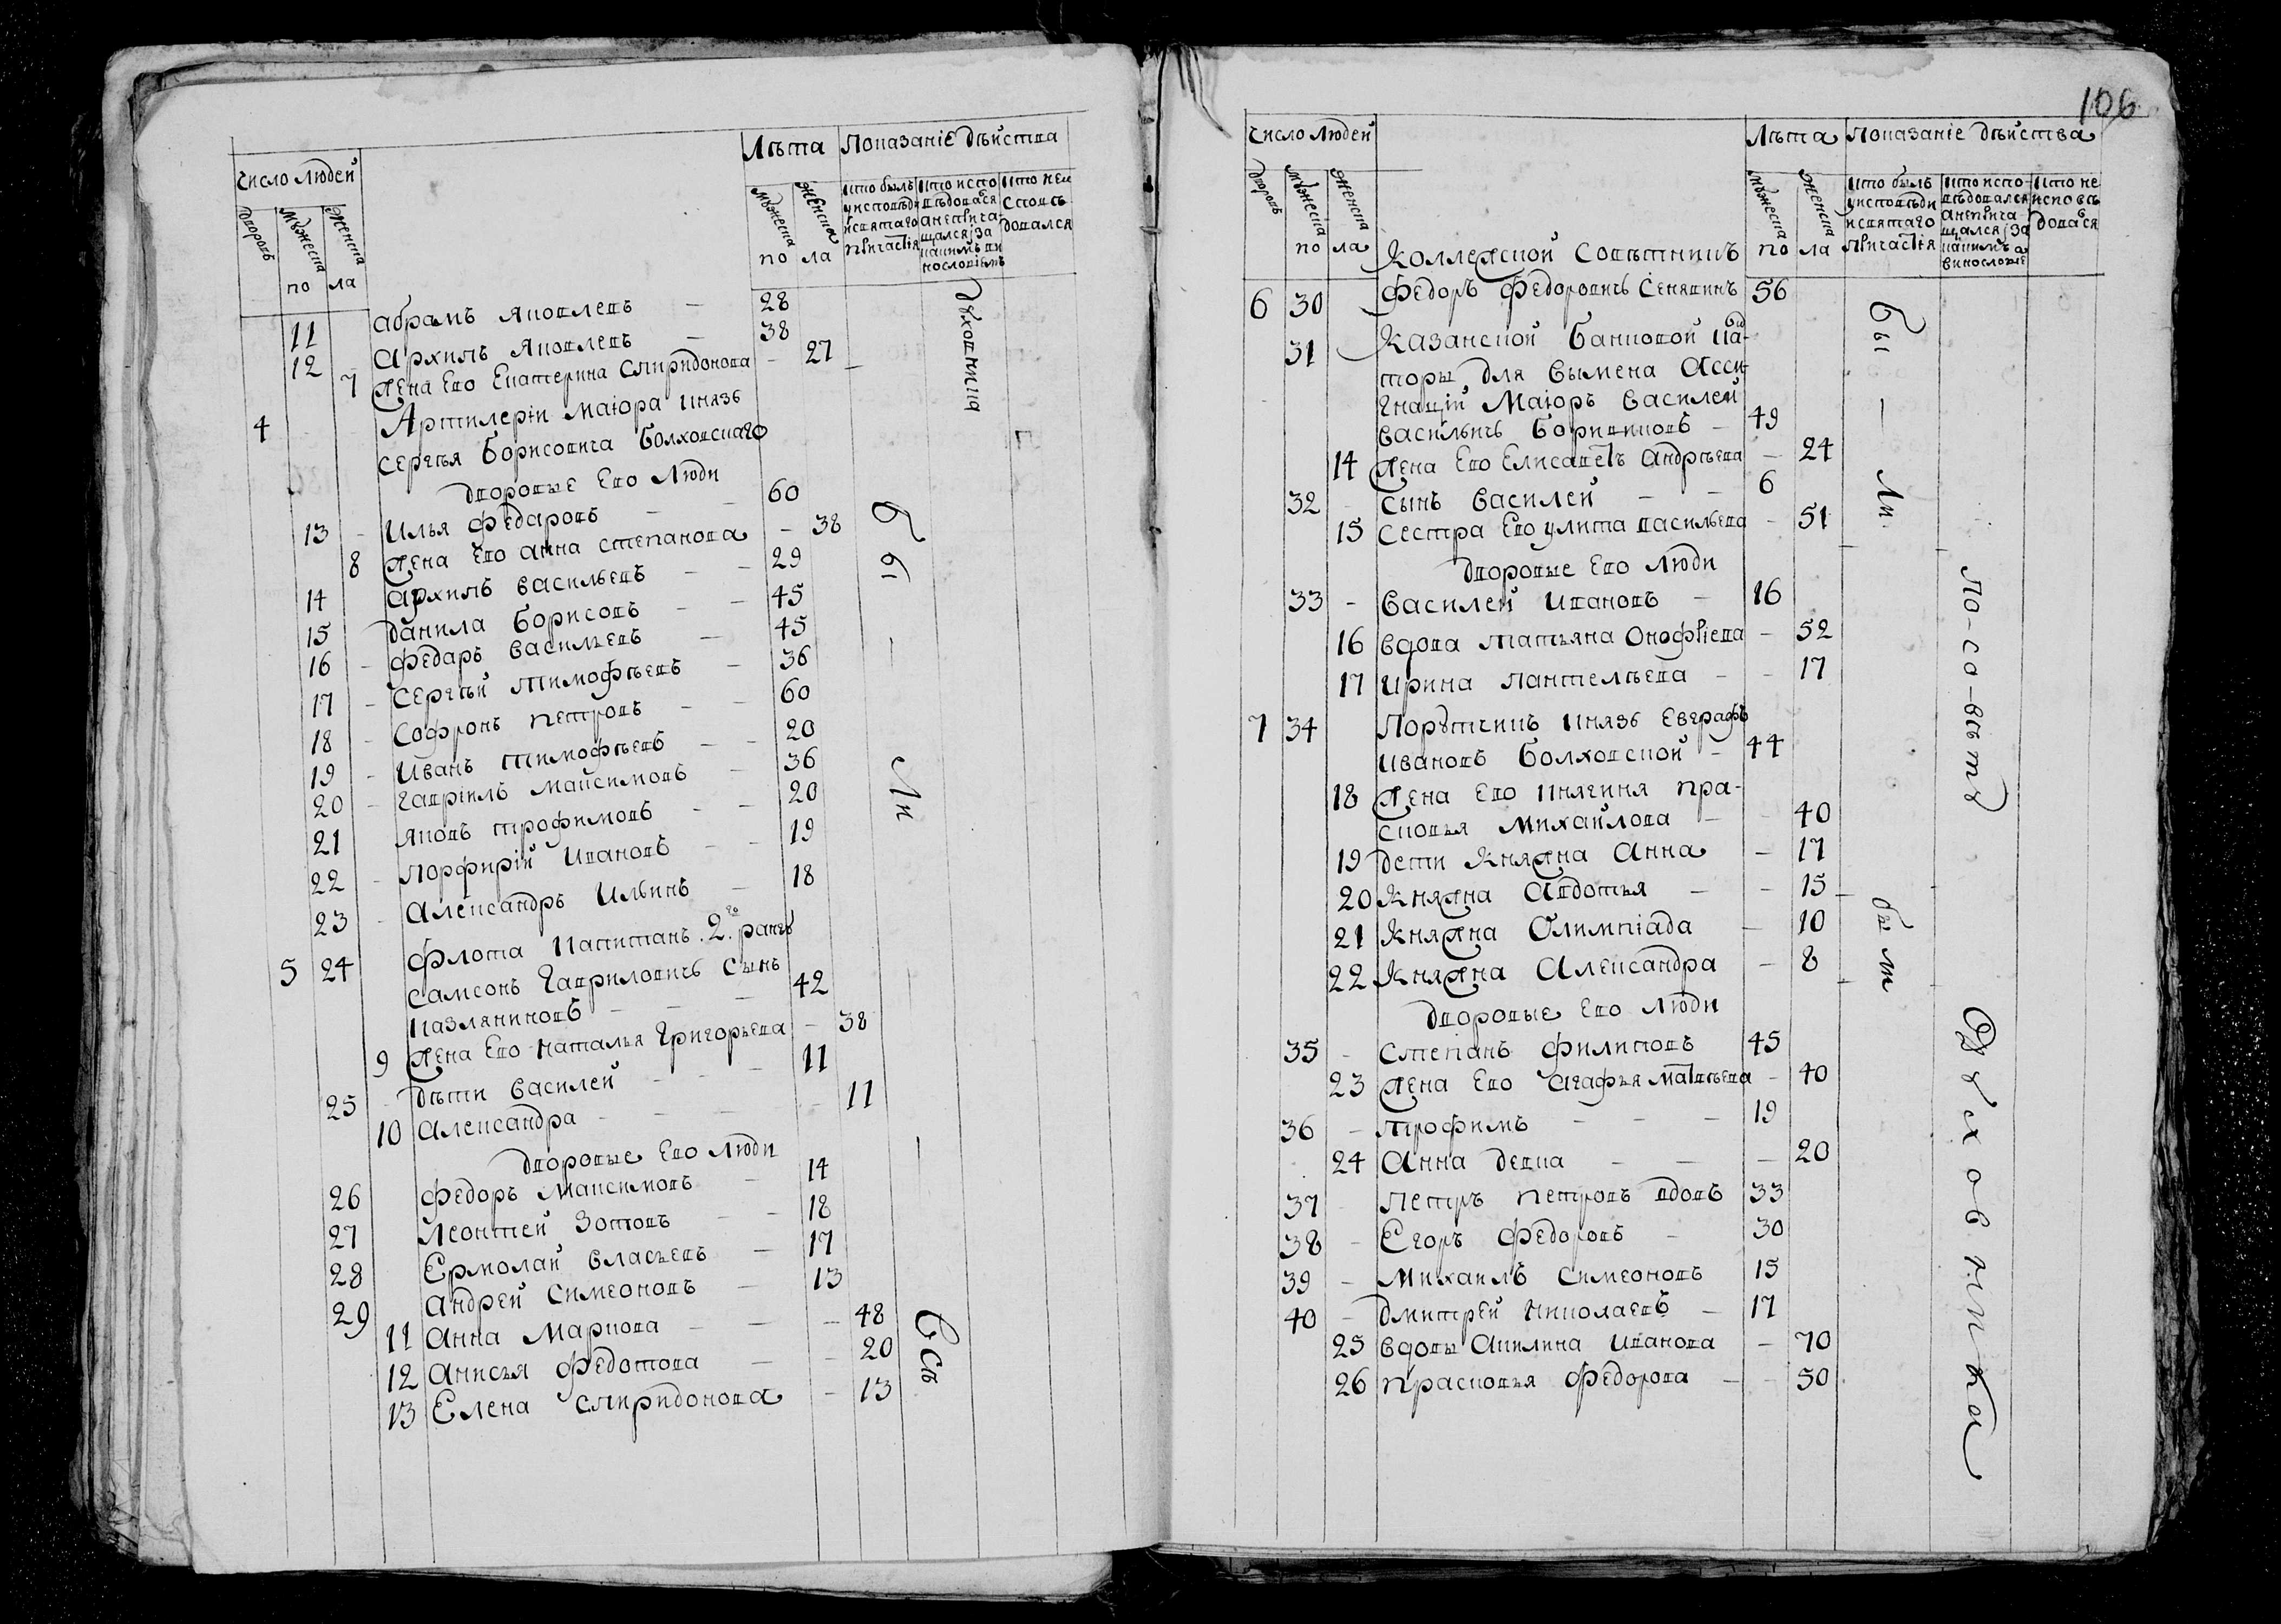 Число людей
Лѣта
Показаніе дѣйства
дворовъ
мужеска
женска
по ла
мужеска
женска
по ла
кто былъ у исповѣди и святаго причастія
кто исповѣдовался а не причащался и за какимъ винословіемъ
кто не исповѣдовался
11 Абрамъ Яковлевъ — 28
12 Архипъ Яковлевъ — 38
7 Жена Ево Екатерина Спиридонова — 27
4 Артилеріи Маіора Князь
Сергѣя Борисовича Болховскаго
дворовые Ево Люди
13 Илья Федаровъ — 60
8 Жена Ево Анна Степанова — 38
14 Архипъ Васильевъ — 29
15 Данила Борисовъ — 45
16 Федаръ Васильевъ — 45
17 Сергѣй Тимофѣевъ — 36
18 Софронъ Петровъ — 60
19 Иванъ Тимофѣевъ — 20
20 Гавріилъ Маѯимовъ — 36
21 Яковъ Трофимовъ — 20
22 Порфирій Ивановъ — 19
23 Александръ Ильинъ — 18
5 24 Флота Капитанъ 2го ранга
Самсонъ Гавриловичь Сынъ
Назляниновъ — 42
9 Жена Ево Наталья Григорьева — 38
25 Дѣти Василей — 11
10 Александра — 11
дворовые Ево Люди
26 Федоръ Максимовъ — 14
27 Леонтей Зотовъ — 18
28 Ермолай Власьевъ — 17
29 Андрей Симеоновъ — 13
11 Анна Маркова — 48
12 Анисья Федотова — 20
13 Елена Спиридонова — 13
духовника
бы — ли — Всѣ
106
Число Людей
Лѣта
Показаніе дѣйства
дворовъ
мужеска
женска
по ла
мужеска
женска
по ла
кто былъ у исповѣди и святаго причастія
кто исповѣдовался а не причащался и за какимъ виновословіе
кто не исповѣдовался
Коллежской Совѣтникъ
6 30 Федоръ Федоровичь Сенявинъ 56
31 Казанской Банковой Кан-
торы для вымена Асси-
гнацій Маіоръ Василей
Васильичь Борщовъ — 49
14 Жена Ево Елисаветъ Андрѣева — 24
32 Сынъ Василей — 6
15 Сестра Ево Улита Васильева — 51
дворовые Ево Люди
33 Василей Ивановъ — 16
16 Вдова Татьяна Онофріева — 52
17 Ирина Пантелѣева — 17
7 34 Порутчикъ Князь Евграфъ
Ивановъ Болховской — 44
18 Жена Ево Княгиня Пра-
сковья Михайлова — 40
19 Дети Княжна Анна — 17
20 Княжна Авдотья — 15
21 Княжна Олимпіада — 10
22 Княжна Александра — 8
дворовые Ево Люди
35 Степанъ Филиповъ 45
23 Жена Ево Агафья Матвѣева — 40
36 Трофимъ — 19
24 Анна девка — 20
37 Петръ Петровъ вдовъ 33
38 Егоръ Федоровъ — 30
39 Михаилъ Симеоновъ 15
40 Дмитрей Николаевъ — 17
25 Вдовы Акилина Иванова — 70
26 Прасковья Федорова — 50
бы — ли
по-со-вѣту
духовника